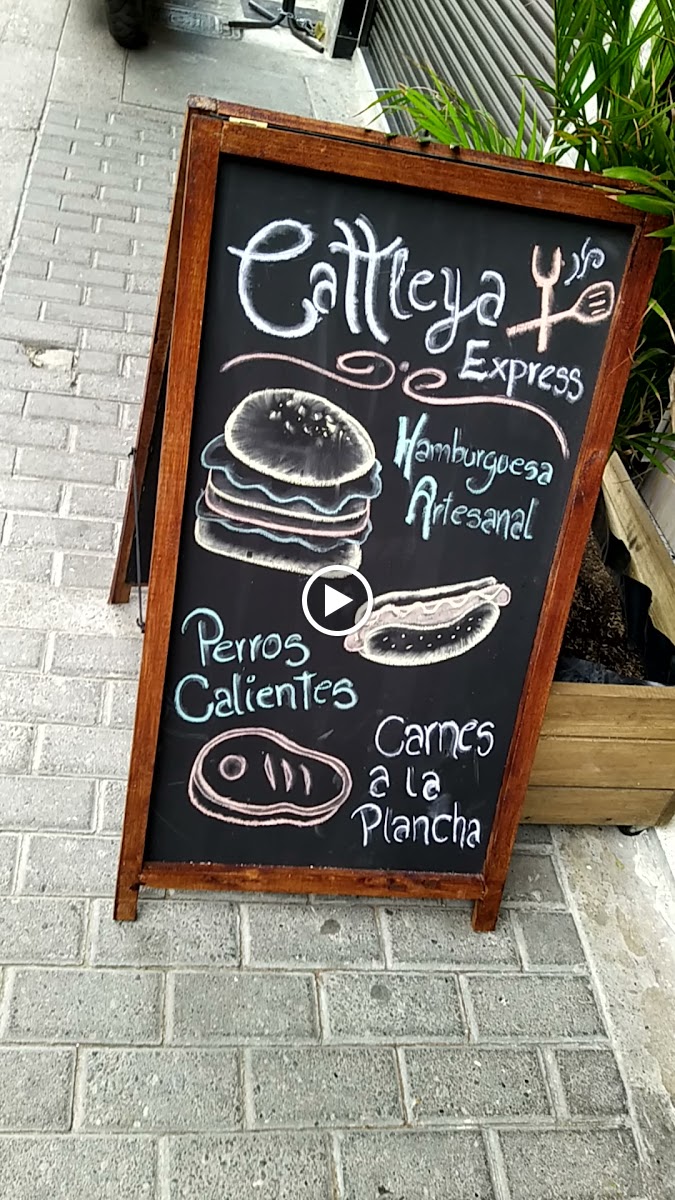 Cattleya
Express
Hamburguesa
Artesanal
Perros
Calientes
Carnes
a la
Plancha